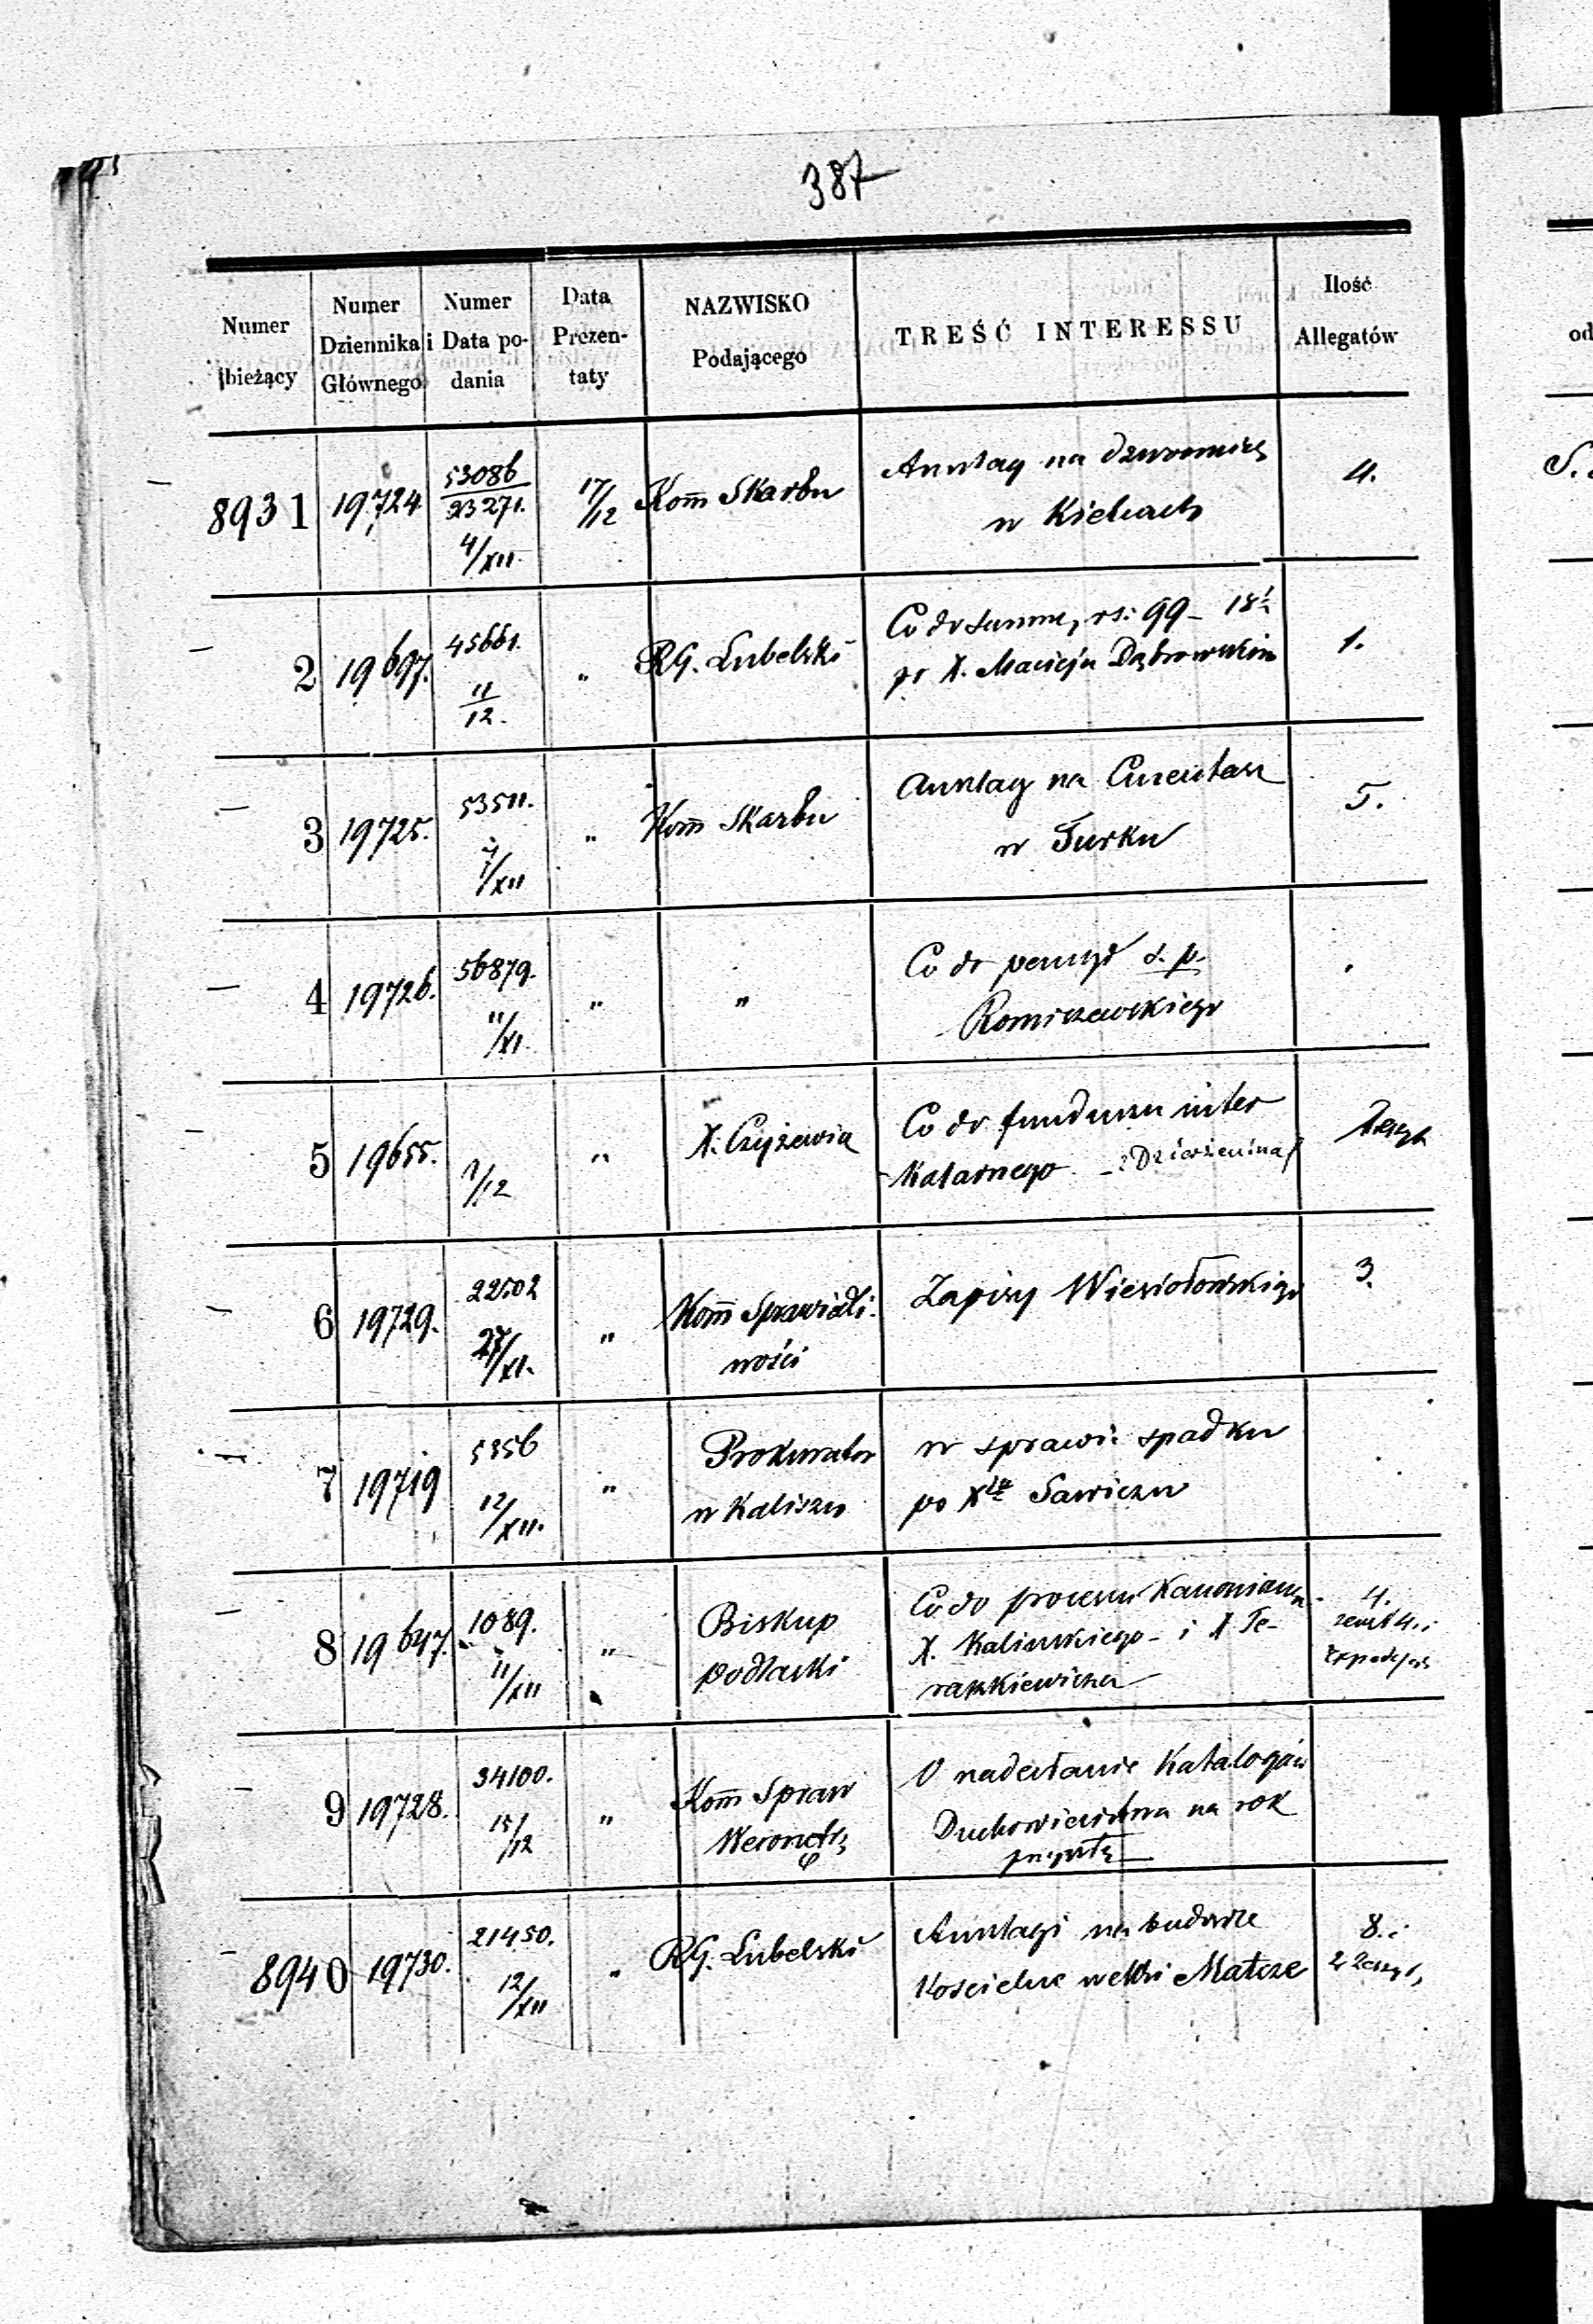 387
Numer bieżący
Numer Dziennika Głównego
Numer i Data podania
Data Prezentaty
NAZWISKO Podającego
TREŚĆ INTERESSU
Ilość Allegatów
8931 19724. 53086 / 23271. 4/XII. 17/12 Kom̄ Skarbu
Anszlag na dzwonnicę
w Kielcach
4.
2 19697. 45661. 11/12. " RG. Lubelski
Co do summy rs: 99 – 18½
po X. Macieju Dąbrowskim
1.
3 19725. 53511. /XII " Kom̄ Skarbu
Anszlag na Cmentarz
w Turku
5.
4 19726. 56879. 11/XI. " "
Co do s. p.
Romiszewskiego
5 19655. 1/12 " X. Czyżewicz
Co do funduszu inter
kalarnego
6 19729. 22502 27/XI. " Kom̄ Sprawiedli-
wości
Zapisy Wiesiołowskiego
3.
7 19719 5356 12/XII. " Prokurator
w Kaliszu
w sprawie spadku
po Sawiczu
8 19647. 1089. 11/XII " Biskup
Podlaski
Co do procesu Kanonicznego
X. Kalinskiego – i X Te-
raszkiewicza
4.
9 19728. 34100. 15/12 " Kom̄ Spraw
Wewnętrz
O nadesłanie Katalogów
Duchowieństwa na rok
przyszły
8940 19730. 21450. 12/XII " RG. Lubelski
Anszlagi na budowle
Kościelne we Wsi Matcze
8. i
2 Zeszyty
S.
od